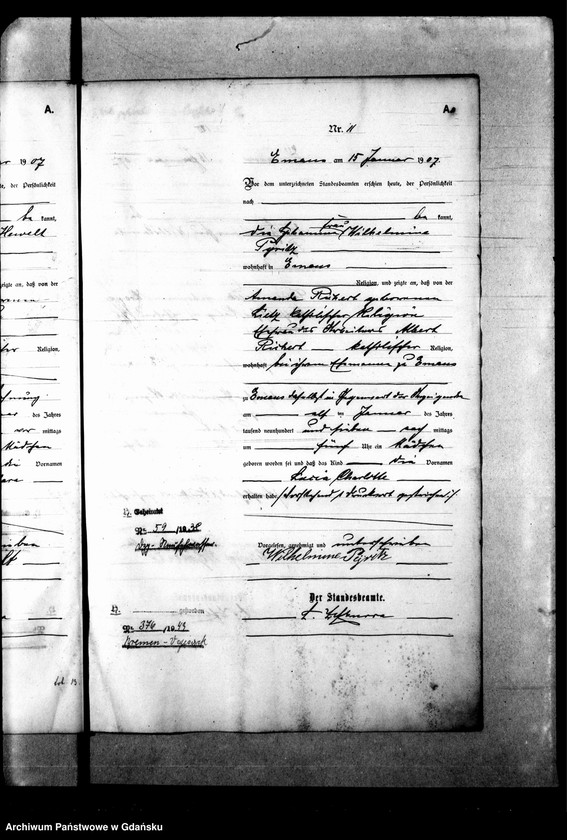 A.
1907
te, der Persönlichkeit
be kannt,
Hewelt
zeigte an, daß von der
Religion,
des Jahres
vor mittags
Mädchen
Vornamen
A.
Nr. 11
Emaus am 15 Januar 1907.
Vor dem unterzeichneten Standesbeamten erschien heute, der Persönlichkeit
nach
be kannt,
die Hebamme Frau Wilhelmine
Pyritz
wohnhaft in Emaus
Religion, und zeigte an, daß von der
Amanda Rickert geborenen
Lietz katholischer Religion
Ehefrau des Arbeiters Albert
Rickert katholischer Religion,
wohnhaft bei ihrem Ehemanne zu Emaus
zu Emaus daselbst in Gegenwart der Anzeigende
am elf ten Januar des Jahres
tausend neunhundert und sieben nach mittags
um fünf Uhr ein Mädchen
geboren worden sei und daß das Kind die Vornamen
Lucia Charlotte
erhalten habe. Vorstehend Druckwort gestrichen.
Vorgelesen, genehmigt und unterschrieben
Wilhelmine Pyritz
Der Standesbeamte.
Geheiratet
Nr. 59/1938
Dzg-Neufahrwasser.
gestorben
Nr. 376/1943
Bremen-Vegesack
Archiwum Państwowe w Gdańsku